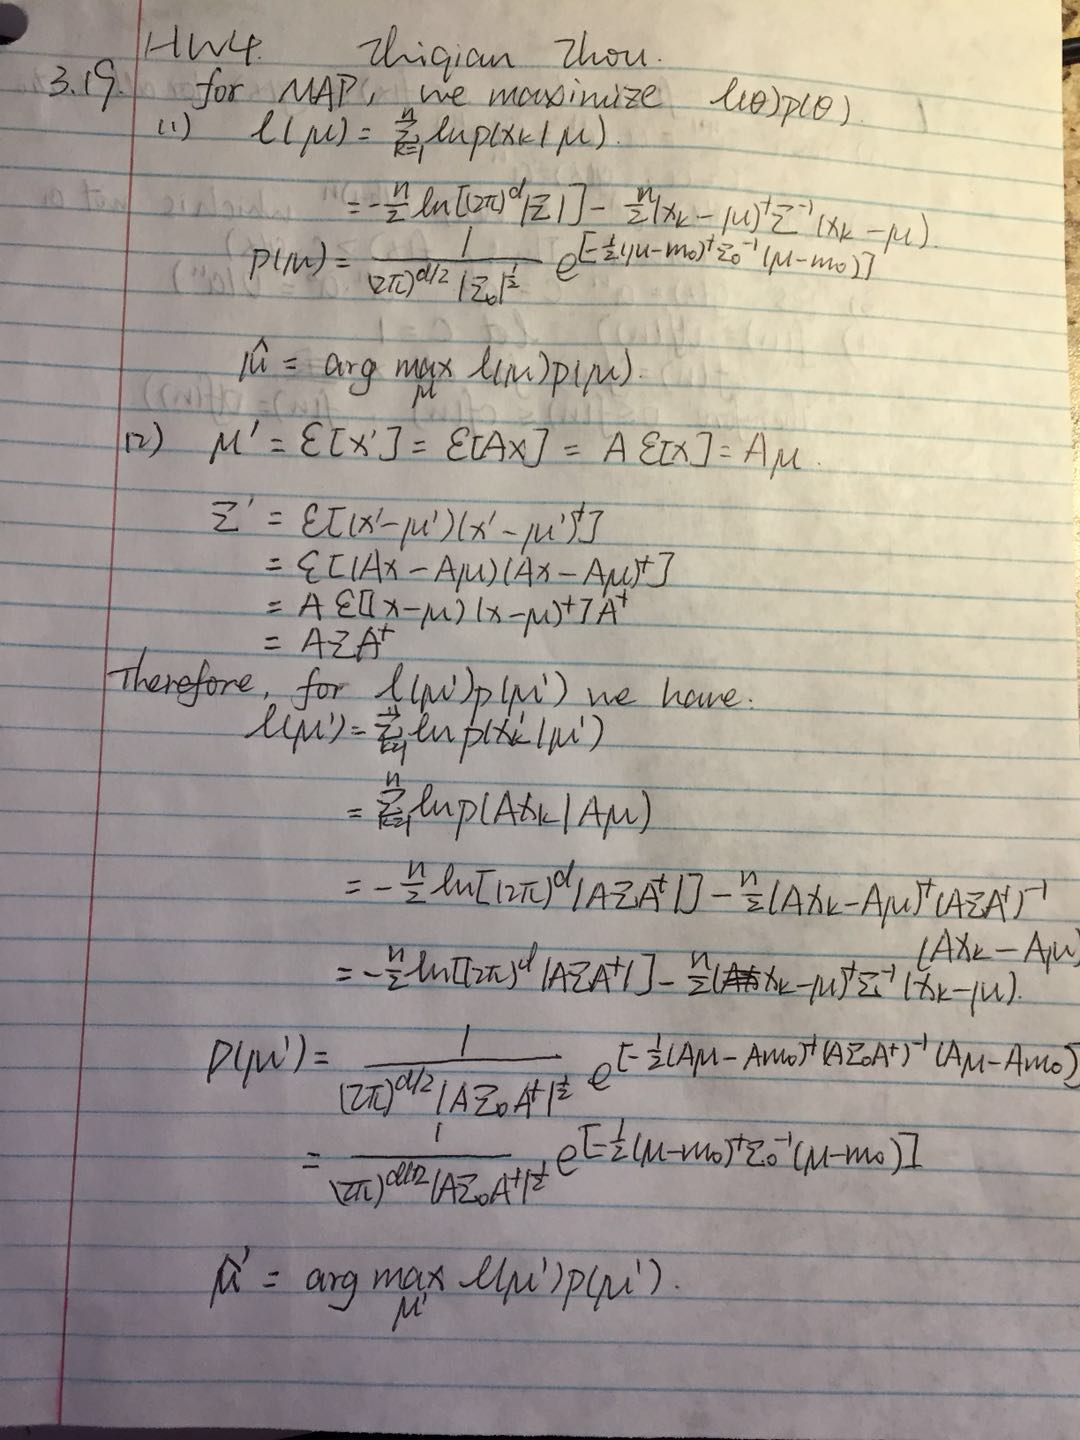 HW4. Zhiqian Zhou.
3.19. for MAP, we maximize l(θ)p(θ).
(1) l(μ) = Σ_{k=1}^{n} ln p(x_k|μ).
= -n/2 ln[(2π)^d |Σ|] - n/2 (x_k - μ)^t Σ^{-1} (x_k - μ).
p(μ) = 1/((2π)^{d/2} |Σ_0|^{1/2}) e^{[-1/2 (μ-m_0)^t Σ_0^{-1} (μ-m_0)]}
μ̂ = arg max_μ l(μ)p(μ).
(2) μ' = ε[x'] = ε[Ax] = A ε[x] = Aμ.
Σ' = ε[(x'-μ')(x'-μ')^t]
= ε[(Ax - Aμ)(Ax - Aμ)^t]
= A ε[(x-μ)(x-μ)^t] A^t
= AΣA^t
Therefore, for l(μ')p(μ') we have.
l(μ') = Σ_{k=1}^{n} ln p(x_k'|μ')
= Σ_{k=1}^{n} ln p(Ax_k|Aμ)
= -n/2 ln[(2π)^d |AΣA^t|] - n/2 (Ax_k - Aμ)^t (AΣA^t)^{-1}
(Ax_k - Aμ)
= -n/2 ln[(2π)^d |AΣA^t|] - n/2 (x_k - μ)^t Σ^{-1} (x_k - μ).
p(μ') = 1/((2π)^{d/2} |AΣ_0A^t|^{1/2}) e^{[-1/2 (Aμ - Am_0)^t (AΣ_0A^t)^{-1} (Aμ - Am_0)]}
= 1/((2π)^{d/2} |AΣ_0A^t|^{1/2}) e^{[-1/2 (μ-m_0)^t Σ_0^{-1} (μ-m_0)]}
μ̂' = arg max_{μ'} l(μ')p(μ').